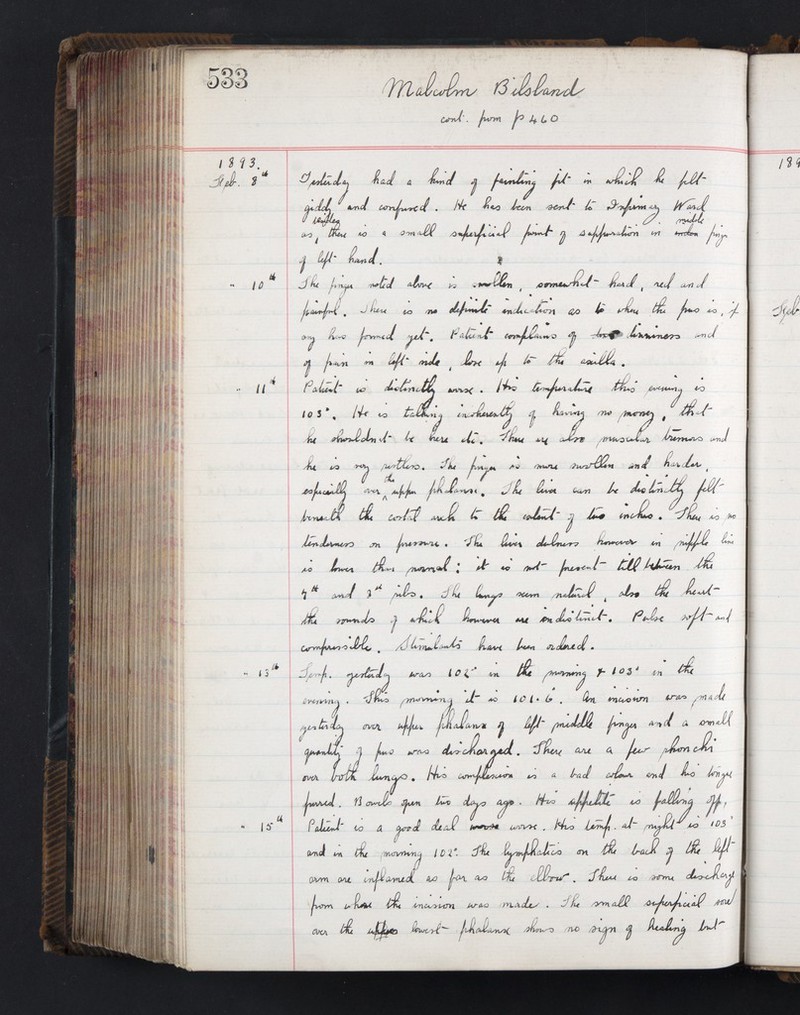 533
Malcolm Bilsland
cont. from p 460
1893.
Feb. 8th Yesterday had a kind of fainting fit in which he felt
giddy and confused. He has been sent to Infirmary Ward
besides middle
as, there is a small superficial point of suppuration in index finger
of left hand.
" 10th The finger noted above is swollen, somewhat hard, red and
painful. There is no definite indication as to where the pus is, if
any has formed yet. Patient complains of and
of pain in left side, close up to the axilla.
" 11th Patient is distinctly worse. His temperature this evening is
103°. He is talking incoherently of having no money, that
he shouldn't be here etc. There are also muscular tremors and
he is very restless. The finger is more swollen and harder,
the
especially over upper phalanx. The liver can be distinctly felt
beneath the costal arch to the extent of two inches. There is no
tenderness on pressure. The liver dulness however in nipple line
is lower than normal: it is not present till between the
and ribs. The lungs seem natural, also the heart
the sounds of which however are indistinct. Pulse soft and
compressible. Stimulants have been ordered.
" 13th Temp. yesterday was 102° in the morning & 103° in the
evening. This morning it is 101.6. An incision was made
yesterday over upper phalanx of left middle finger and a small
quantity of pus was discharged. There are a few rhonchi
over both lungs. His complexion is a bad colour and his tongue
furred. Bowels open two days ago. His appetite is falling off.
" 15th Patient is a good deal worse worse. His temp. at night is 103°
and in the morning 102°. The lymphatics on the back of the left
arm are inflamed as far as the elbow. There is some discharge
from where the incision was made. The small superficial sore
over the upper lowest phalanx shows no sign of healing but
189
Feb